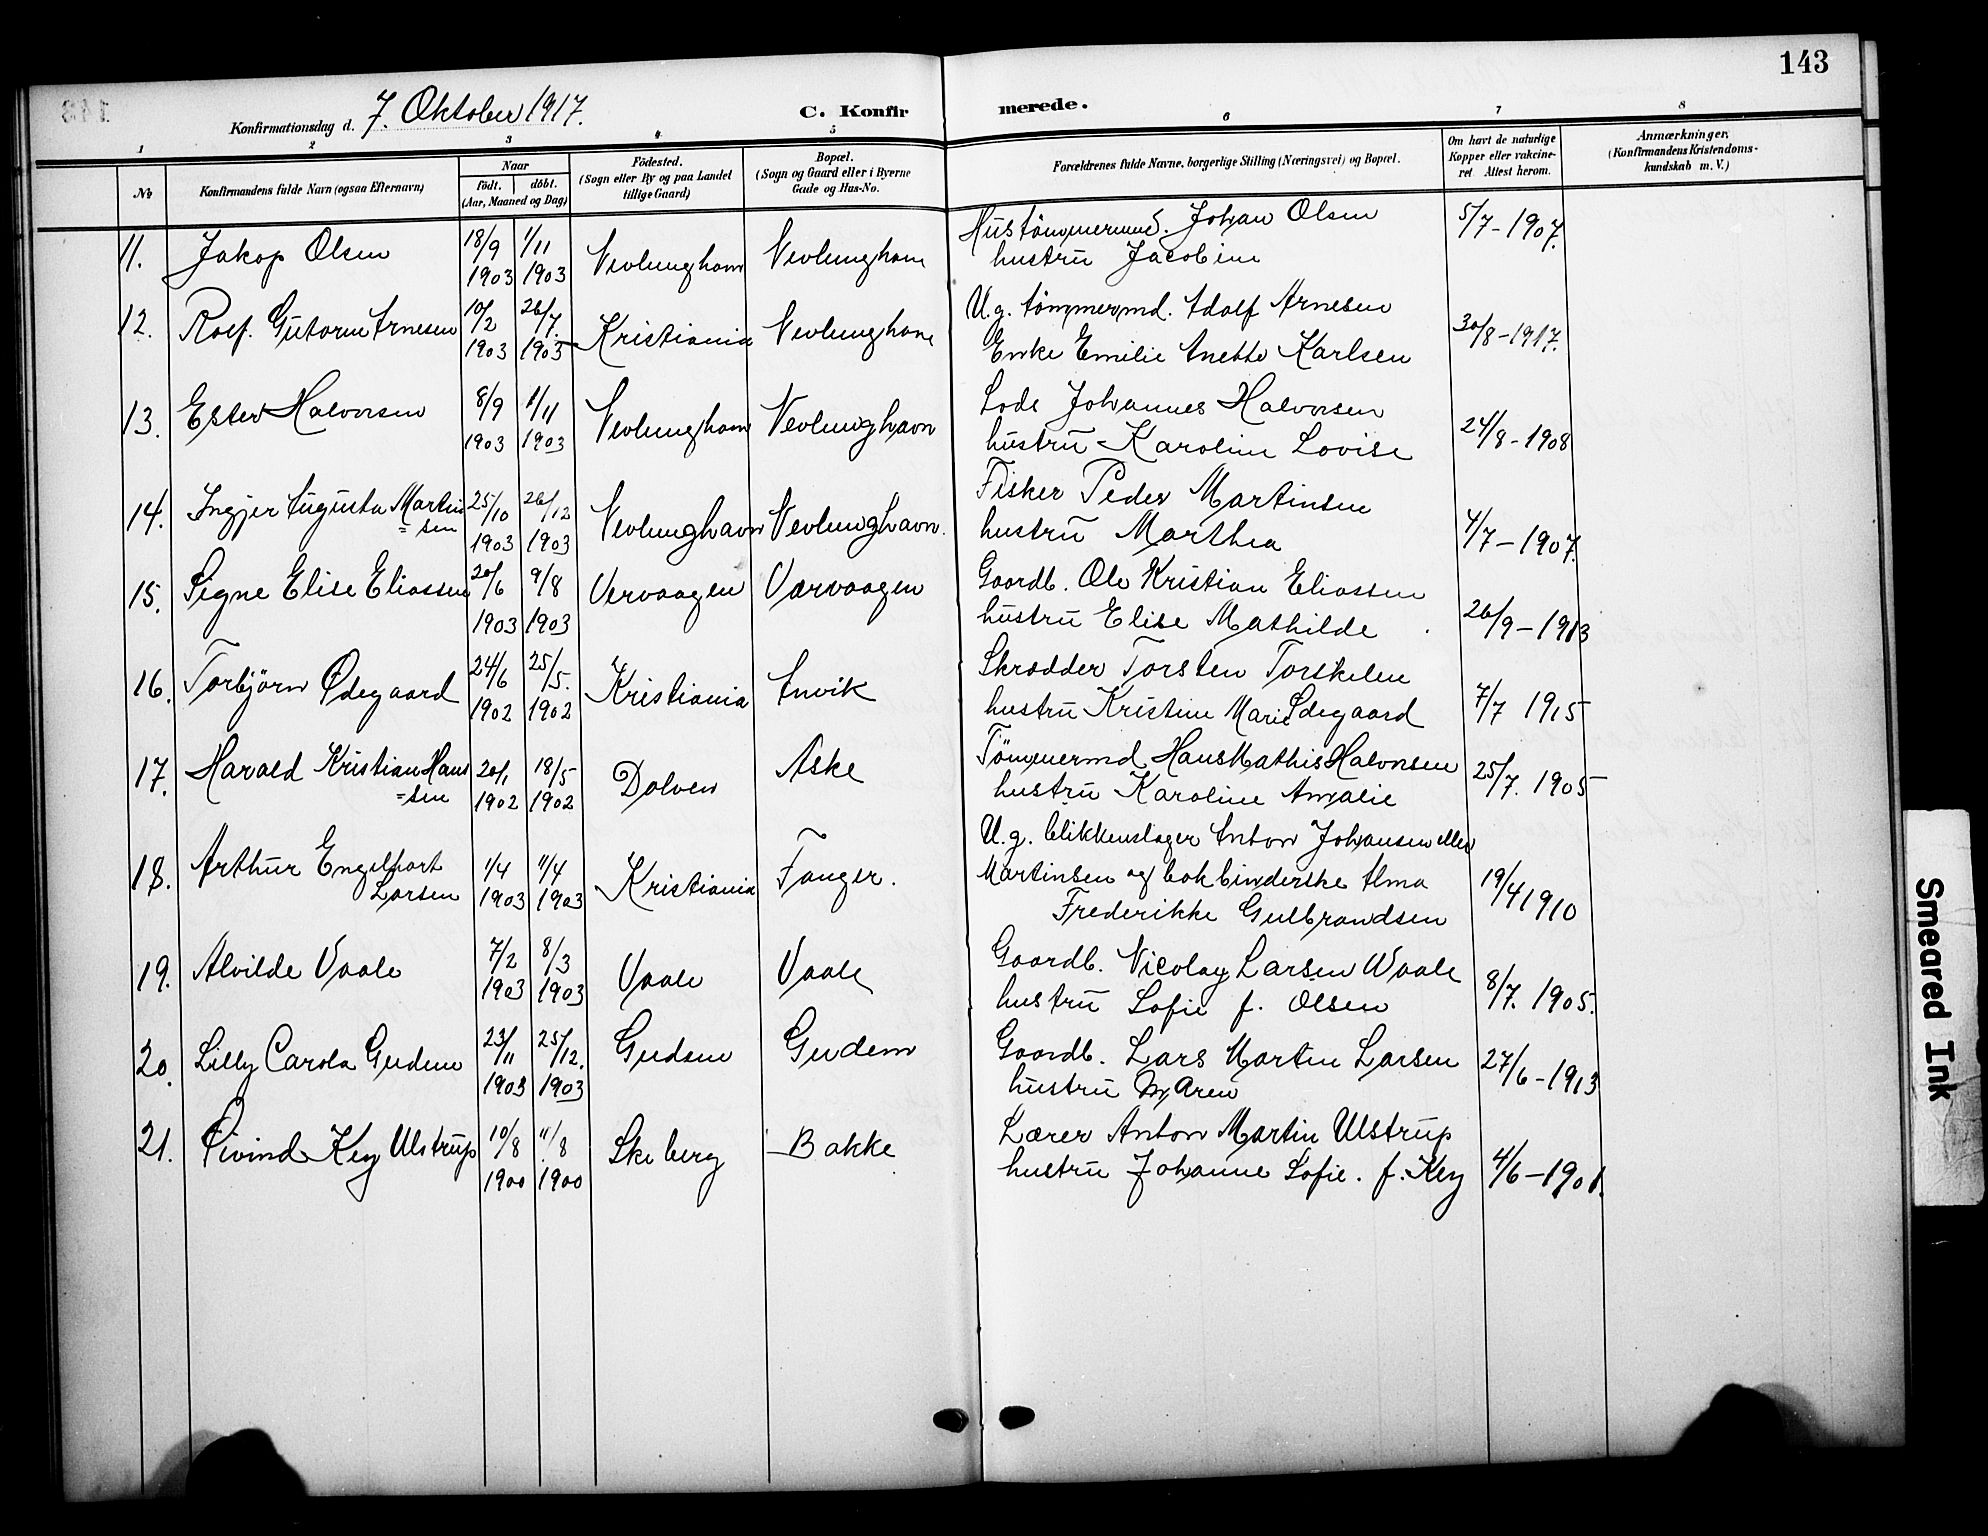 143
Konfirmationsdag d. 7. Oktober 1917.
C. Konfirmerede.
1 2 3 4 5 6 7 8
No
Konfirmandens fulde Navn (ogsaa Efternavn)
Naar
født. døbt.
(Aar, Maaned og Dag)
Fødested.
(Sogn eller By og paa Landet
tillige Gaard)
Bopæl.
(Sogn og Gaard eller i Byerne
Gade og Hus-No.
Forældrenes fulde Navne, borgerlige Stilling (Næringsvei) og Bopæl.
Om havt de naturlige
Kopper eller vakcine-
ret Attest herom.
Anmærkninger.
(Konfirmandens Kristendoms-
kundskab m. V.)
11. Jakop Olsen 18/9 1903 1/11 1903 Nevlungham Nevlungham
Hustömmermd. Johan Olsen
hustru Jacobine
5/7-1907.
12. Rolf. Gutorm Arnesen 10/2 1903 26/7. 1903 Kristiania Nevlungham
U.g. tömmermd. Adolf Arnesen
Enke Emilie Anette Karlsen
30/8-1917.
13. Ester Halvorsen 8/9 1903 1/11 1903 Nevlungham Nevlunghavn
Lods Johannes Halvorsen
hustru Karoline Lovise
24/8-1908
14. Ingjer Augusta Martin
=sen 25/10 1903 26/12 1903 Nevlunghavn Nevlunghavn.
Fisker Peder Martinsen
hustru Marthea
4/7-1907.
15. Signe Elise Eliassen 20/6 1903 9/8 1903 Vervaagen Varvaagen
Gaardb. Ole Kristian Eliassen
hustru Elise Mathilde
26/9-1913
16. Torbjörn Ødegaard 24/6 1902 25/5. 1902 Kristiania Anvik
Skrædder Torsten Torskelen
hustru Kristine Marie Ødegaard
7/7 1915
17. Harald Kristian Hans
=sen 20/1 1902 18/5 1902 Dolven Aske
Tömmermd Hans Mathis Halvorsen
hustru Karoline Amalie
25/7. 1905
18. Arthur Engelhart
Larsen 1/4 1903 11/4 1903 Kristiania Fauger.
U.g. blikkenslager Anton Johansen eller
Martinsen og bokbinderske Alma
Frederikke Gulbrandsen
19/4 1910
19. Alvilde Vaale 7/2 1903 8/3 1903 Vaale Vaale
Gaardb. Nicolay Larsen Waale
hustru Sofie f. Olsen
8/7. 1905.
20. Lilly Carola Gudem 23/11 1903 25/12. 1903 Gudem Gudem
Gaardb. Lars Martin Larsen
hustru Maren
27/6-1913
21. Öivind Key Ulstrup 10/8 1900 11/8 1900 Skiberg Bakke
Lærer Anton Martin Ulstrup
hustru Johanne Sofie. f. Key
4/6-1901.
Smeared Ink